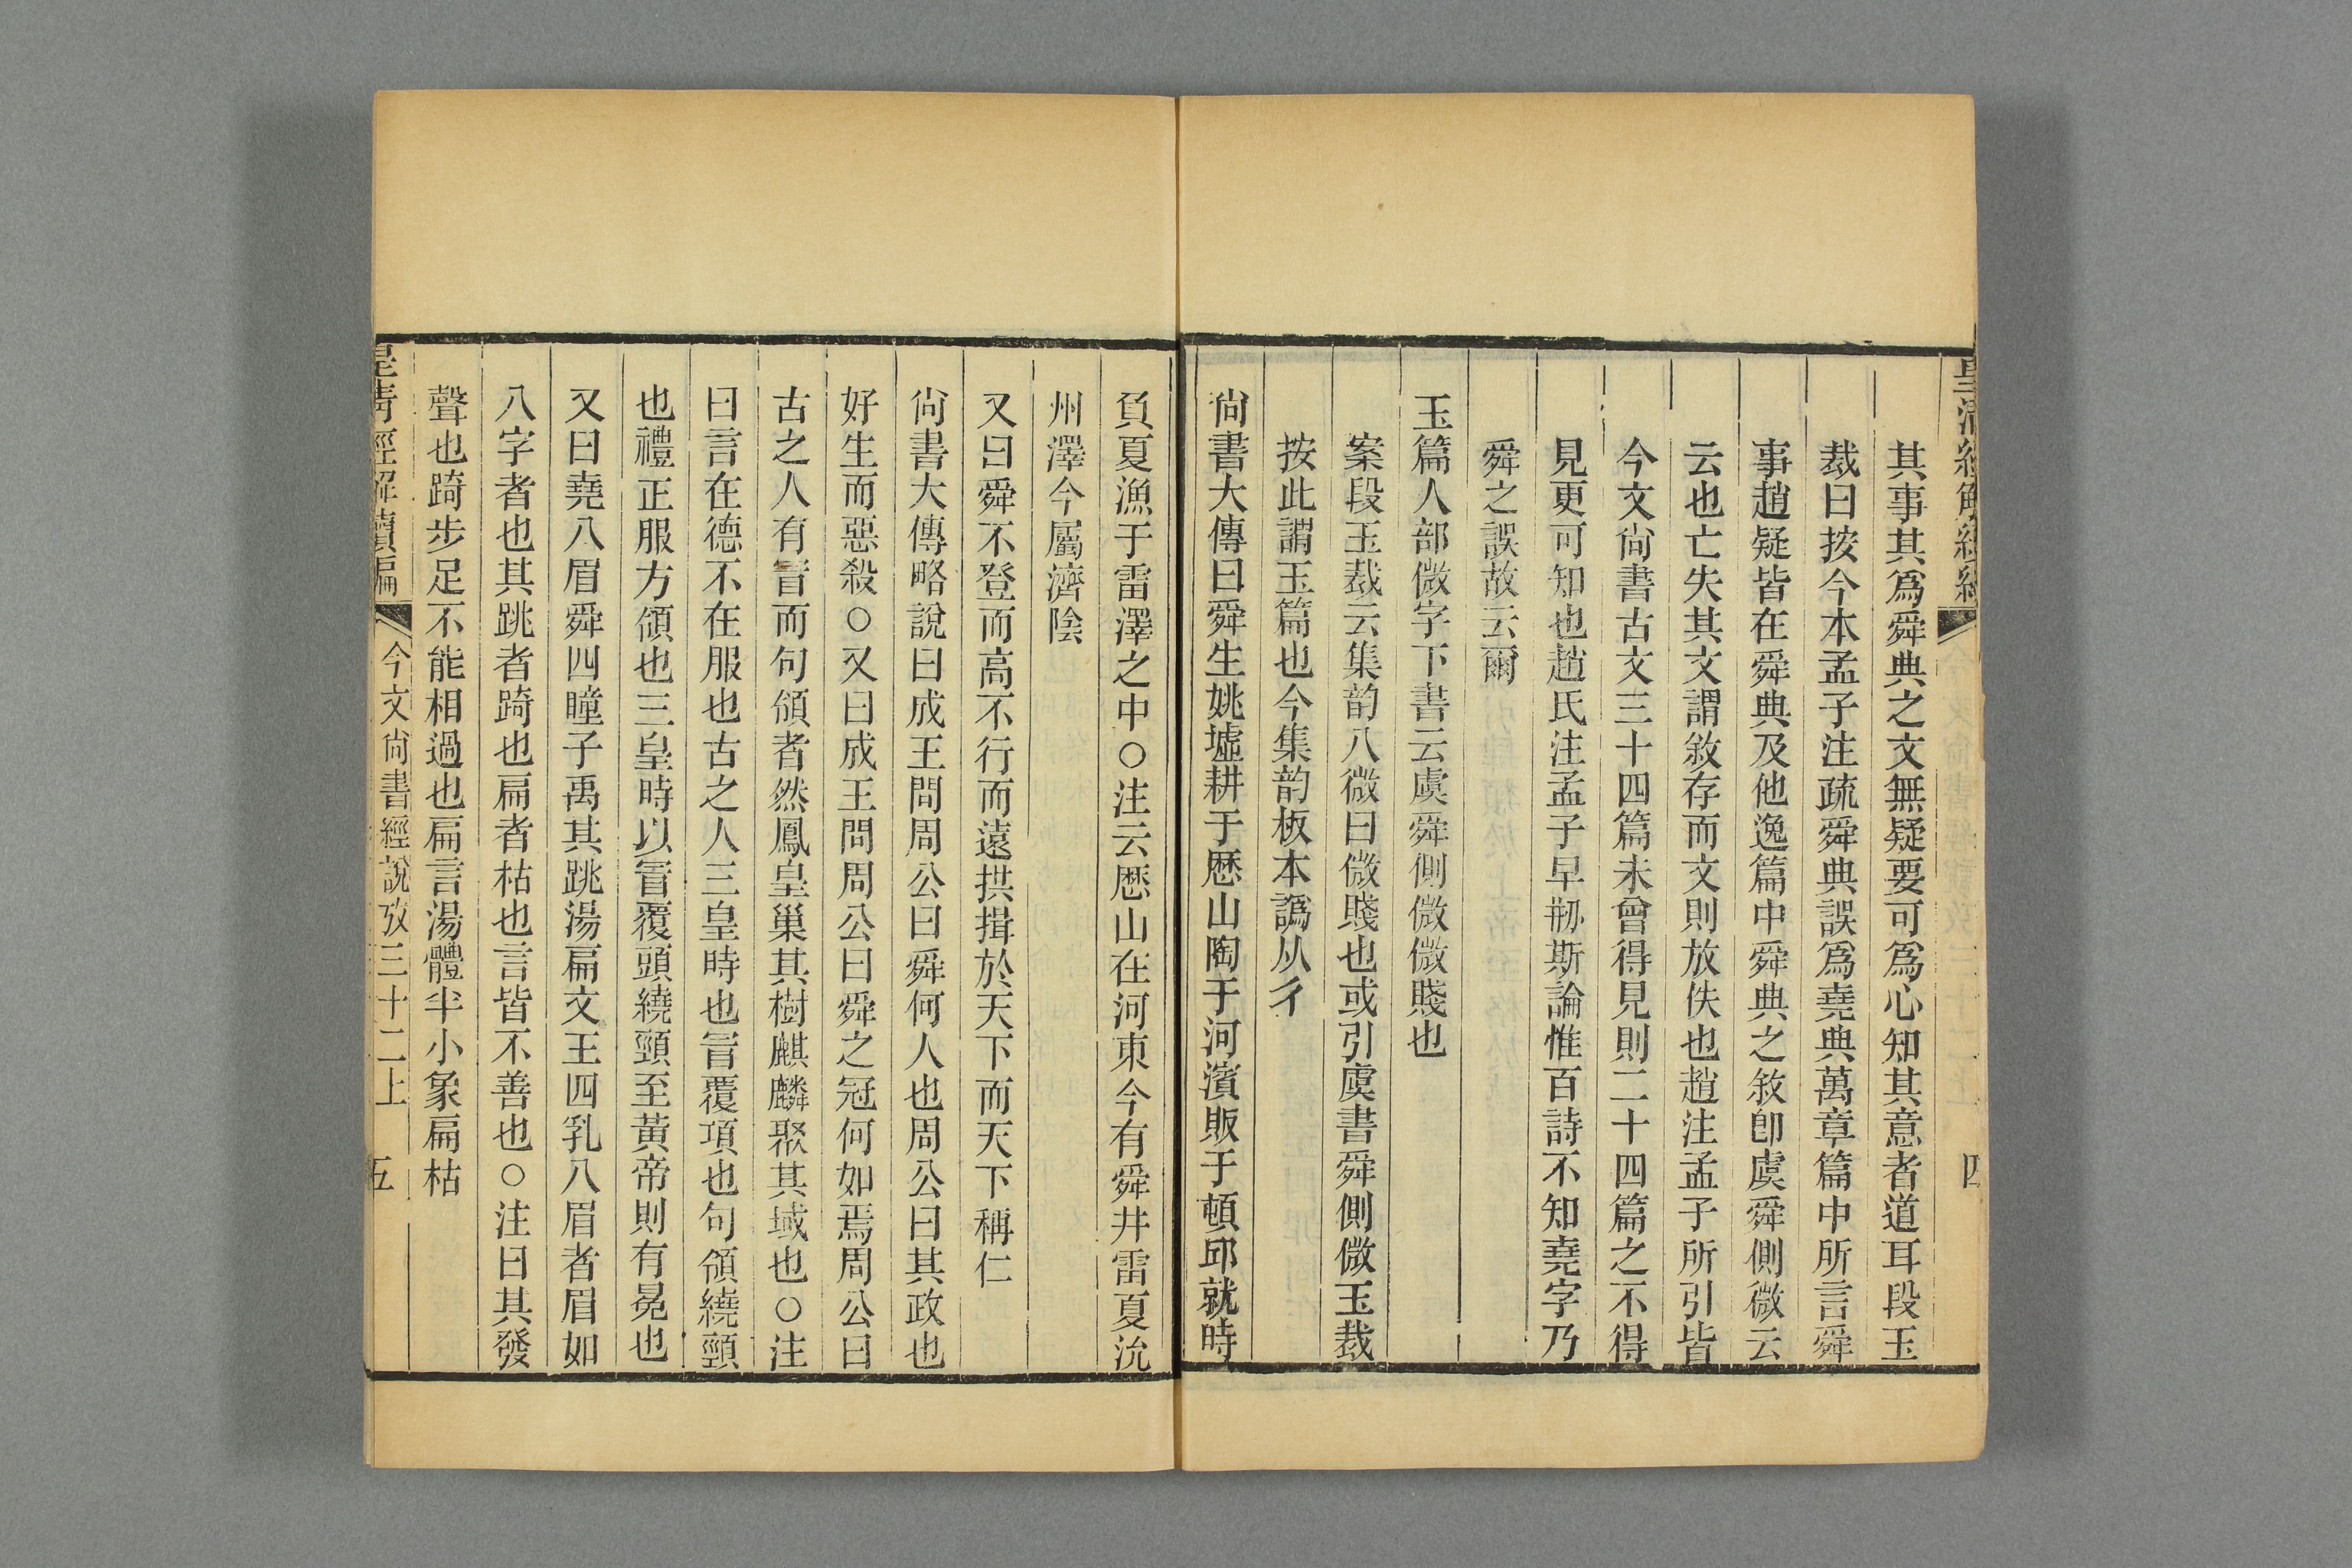 其事其爲舜典之文無疑要可爲心知其意者道耳段玉
裁曰按今本孟子注疏舜典誤爲堯典萬章篇中所言舜
事趙疑皆在舜典及他逸篇中舜典之敘卽虞舜側微云
云也亡失其文謂敘存而文則放佚也趙注孟子所引皆
今文尙書古文三十四篇未曾得見則二十四篇之不得
見更可知也趙氏注孟子早刱斯論惟百詩不知堯字乃
舜之誤故云爾
玉篇人部㣲字下書云虞舜側㣲㣲賤也
案段玉裁云集韵八微曰㣲賤也或引虞書舜側㣲玉裁
按此謂玉篇也今集韵板本譌从彳
尙書大傳曰舜生姚墟耕于厯山陶于河濱販于頓邱就時
負夏漁于雷澤之中○注云厯山在河東今有舜井雷夏沇
州澤今屬濟陰
又曰舜不登而高不行而遠拱揖於天下而天下稱仁
尙書大傳略說曰成王問周公曰舜何人也周公曰其政也
好生而惡殺○又曰成王問周公曰舜之冠何如焉周公曰
古之人有冒而句領者然鳳皇巢其樹麒麟聚其域也○注
曰言在德不在服也古之人三皇時也冒覆項也句領繞頸
也禮正服方領也三皇時以冒覆頭繞頸至黃帝則有冕也
又曰堯八眉舜四瞳子禹其跳湯扁文王四乳八眉者眉如
八字者也其跳者踦也扁者枯也言皆不善也○注曰其發
聲也踦步足不能相過也扁言湯體半小象扁枯
皇淸經解續編
今文尙書經說攷三十二上
五